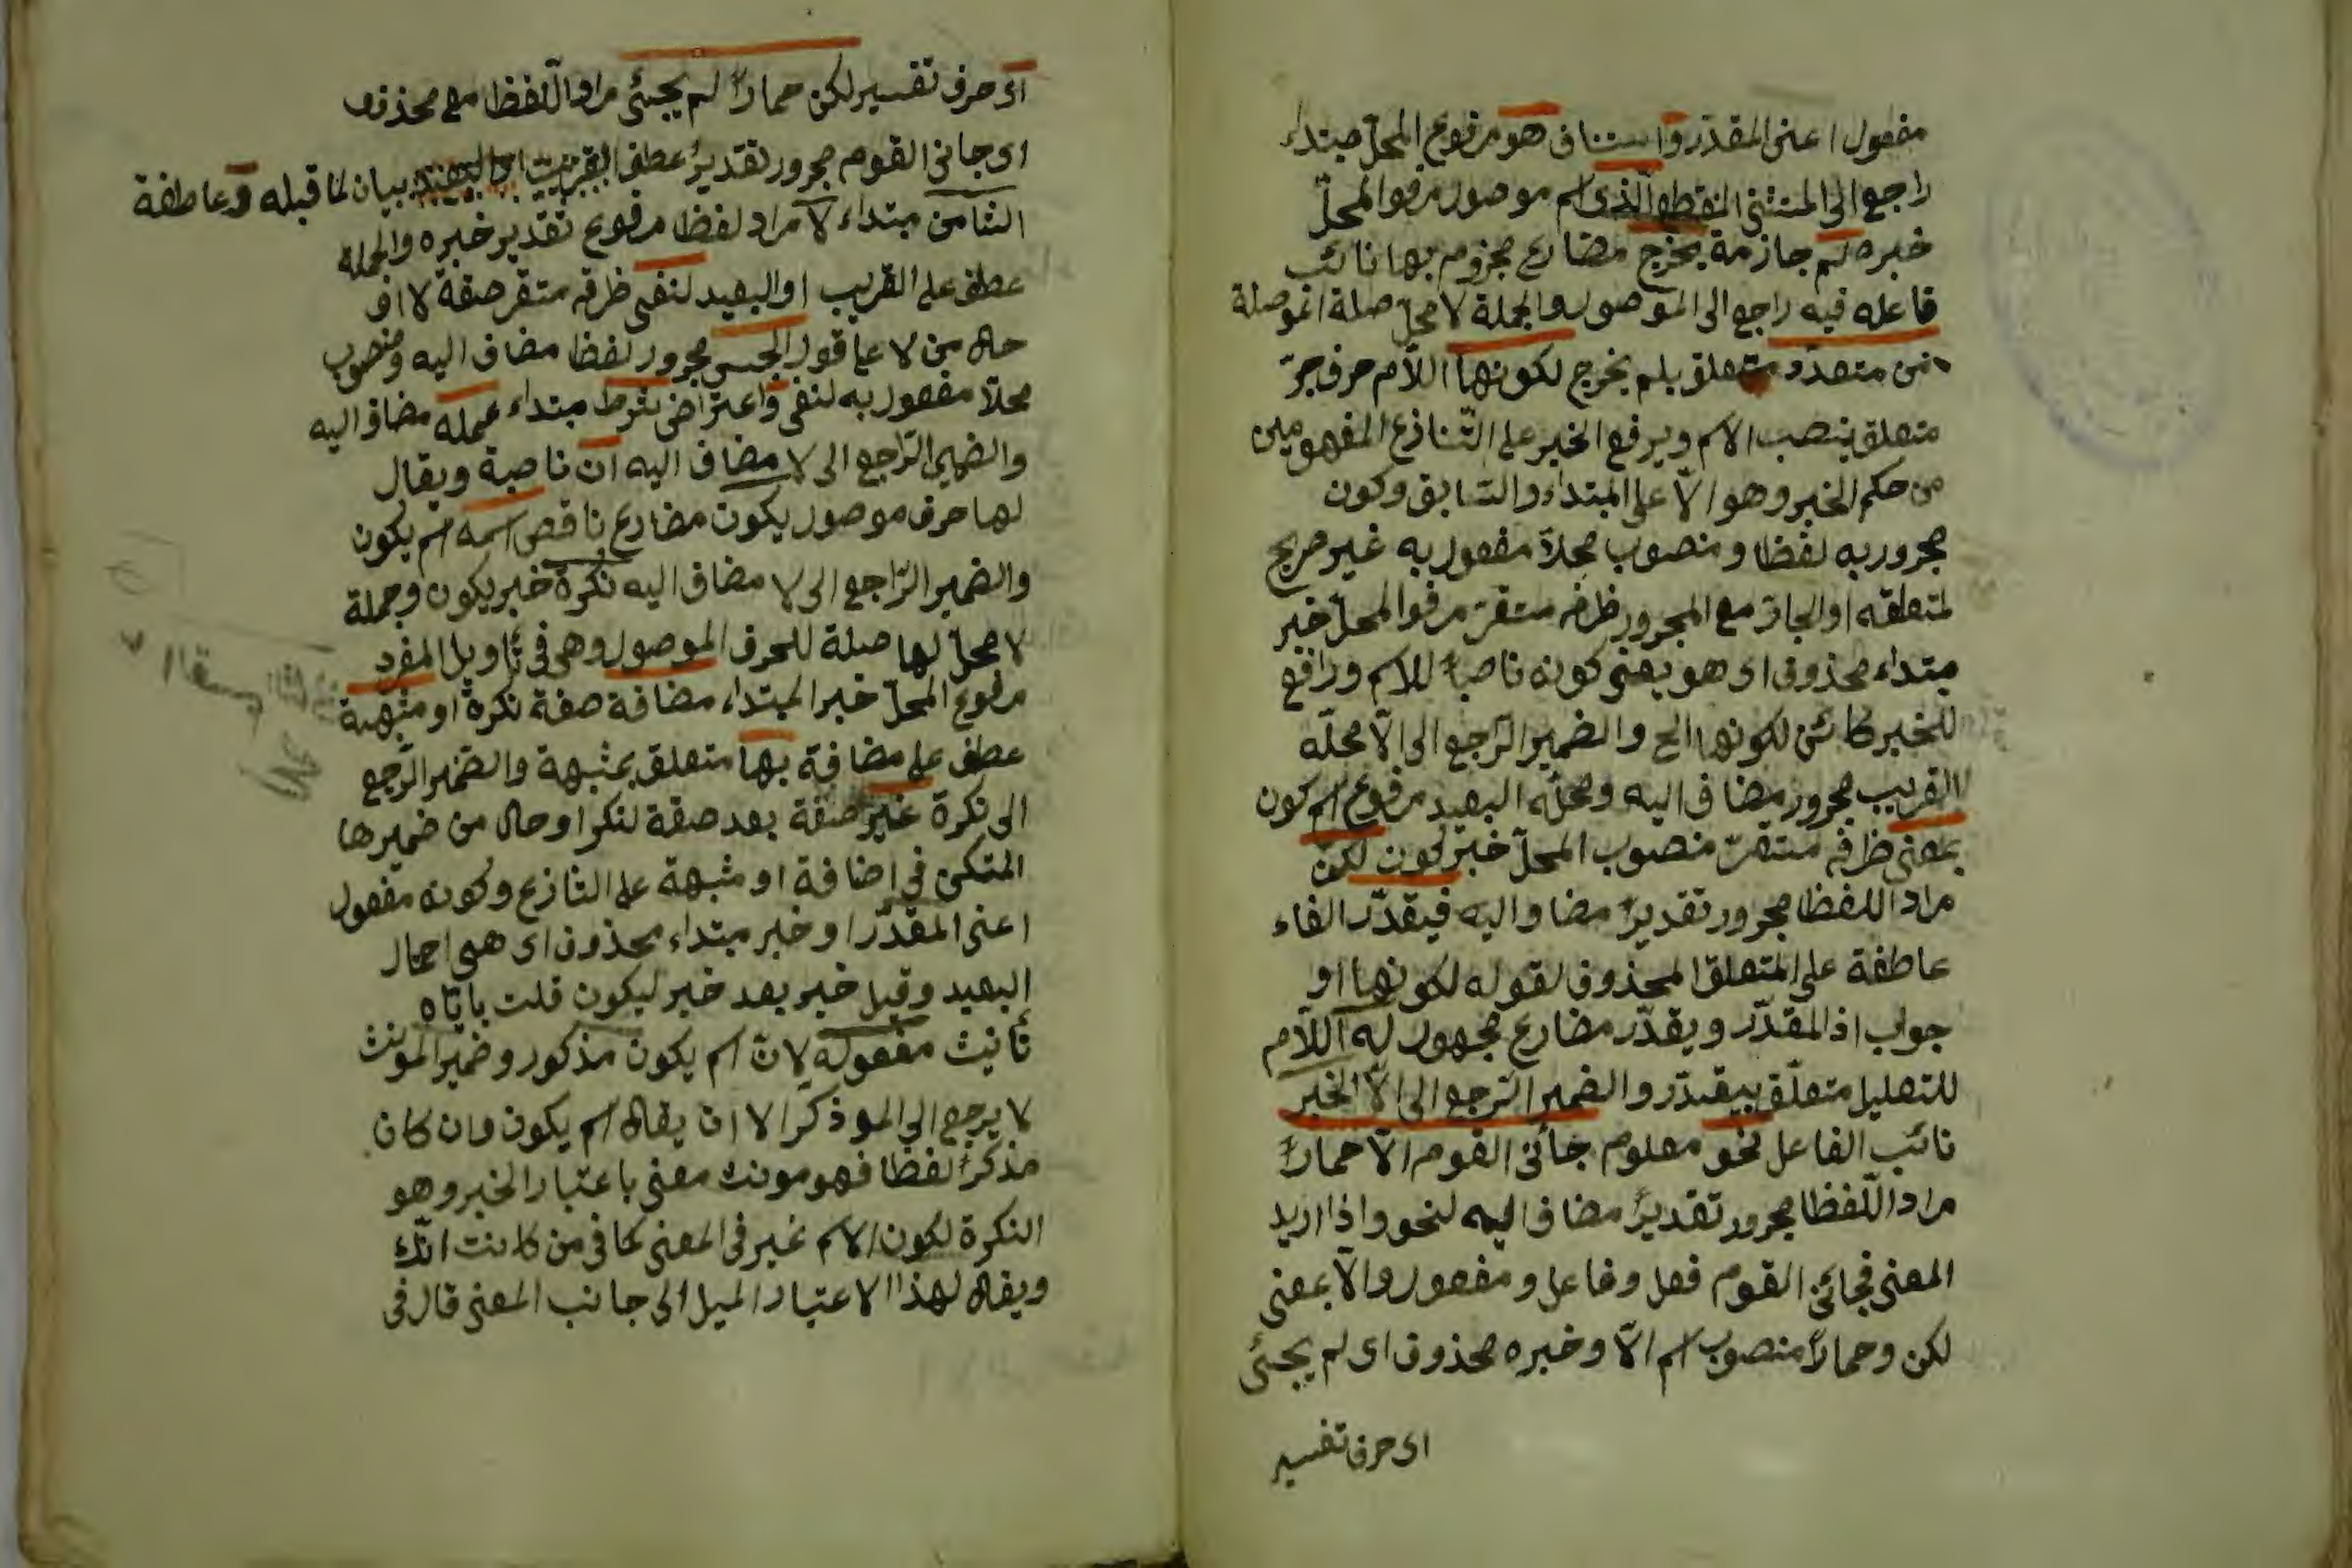 مفعول اعنى المقدّر واستناف هو مرفوع المحلّ مبتداء
راجع الى المستثنى المنقطع الّذى اسم موصول مرفوا المحلّ
خبره لم جازمة يخرج مضارع مجزوم بها نائب
فاعله فيه راجع الى الموصول والجملة لا محلّ صلة الموصلة
من متعدّد متعلق بلم يخرج لكونها اللّام حرف جرّ
متعلق ينصب الاسم ويرفع الخبر على التّنازع المفهومين
من حكم الخبر وهو الّا على المبتداء والسّابق وكون
مجرور به لفظا ومنصوب محلّا مفعول به غير صريح
لمتعلقه او الجار مع المجرور ظرف مستقرّ مرفوا المحلّ خبر
مبتداء محذوف اى هو يعنى كونه ناصباً للاسم ورافع
للخبر كائن لكونها الخ والضمير الرّاجع الى الّا محلّه
القريب مجرور مضاف اليه ومحلّه البعيد مرفوع اسم كون
بمعنى ظرف مستقرّ منصوب المحلّ خبر لكون لكنّ
مراد اللفظ مجرور تقديرً مضاف اليه فيقدّر الفاء
عاطفة على المتعلق المحذوف لقوله لكونها او
جواب اذ المقدّر ويقدّر مضارع مجهول له اللّام
للتعليل متعلّق بيقدّر والضمير الرّجع الى الّا الخبر
نائب الفاعل نحو معلوم جائنى القوم الّا حماراً
مراد اللّفظ مجرور تقديرً مضاف اليه لنحو واذا اريد
المعنى فجائنى القوم فعل وفاعل ومفعول والّا بمعنى
لكن وحماراً منصوب اسم الّا وخبره محذوف اى لم يجئى
اى حرف تفسير
اى حرف تفسير لكن حماراً لم يجئى مراد اللّفظ مع محذوف
اى جانى القوم مجرور تقديرً عطف القريب بيان لما قبله و عاطفة
الثامن مبتداء لا مراد لفظا مرفوع تقدير خبره والجملة
عطف على القريب او البعيد لنفى ظرف مستقر صفة لا او
حال من لا على قول الجنس مجرور لفظا مضاف اليه ومنصوب
محلّا مفعول به لنفى واعتراض شرط مبتداء عمله مضاف اليه
والضمير الرّاجع الى لا مضاف اليه ان ناصبة ويقال
لها حرف موصول يكون مضارع ناقص اسمه اسم يكون
والضمير الرّاجع الى لا مضاف اليه نكرة خبر يكون وجملة
لا محلّ لها صلة للحرف الموصول وهى فى تأويل المفرد
مرفوع المحلّ خبر المبتداء مضافة صفة نكرة او مشبهة
عطف على مضافة بها متعلق بمشبهة والضمير الرّجع
الى نكرة غير صفة بعد صفة لنكرا وحال من ضميرها
المتكن فى اضافة او مشبهة على التنازع وكونه مفعول
اعنى المقدّر او خبر مبتداء محذوف اى هى احمال
البعيد وقيل خبر بعد خبر ليكون قلت باباه
تأنيث مفعوله لانّ اسم يكون مذكور وضمير المونث
لا يرجع الى الموذكر الا ان يقال اسم يكون وان كان
مذكرً لفظا فهو مونث معنى باعتبار الخبر وهو
النكرة لكون الاسم غير فى المعنى كما فى من كانت امّك
ويقال لهذا الاعتبار الميل الى جانب المعنى قال فى